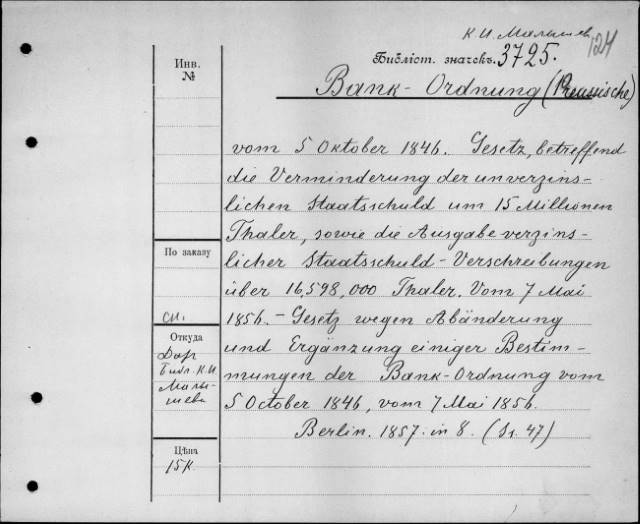 К. И. Малышев
124
Библіст. значекъ. 3725.
Инв.
№
Bank-Ordnung (Preussische)
vom 5 Oktober 1846. Gesetz, betreffend
die Verminderung der unverzins-
lichen Staatsschuld um 15 Millionen
Thaler, sowie die Ausgabe verzins-
licher Staatsschuld-Verschreibungen
über 16,598,000 Thaler. Vom 7 Mai
1856. - Gesetz wegen Abänderung
und Ergänzung einiger Bestim-
mungen der Bank-Ordnung vom
5 October 1846, vom 7 Mai 1856.
Berlin. 1857. in 8. (S. 47)
По заказу
сн.
Откуда
Дар
Библ. К. И.
Малы-
шева
Цѣна
15 к